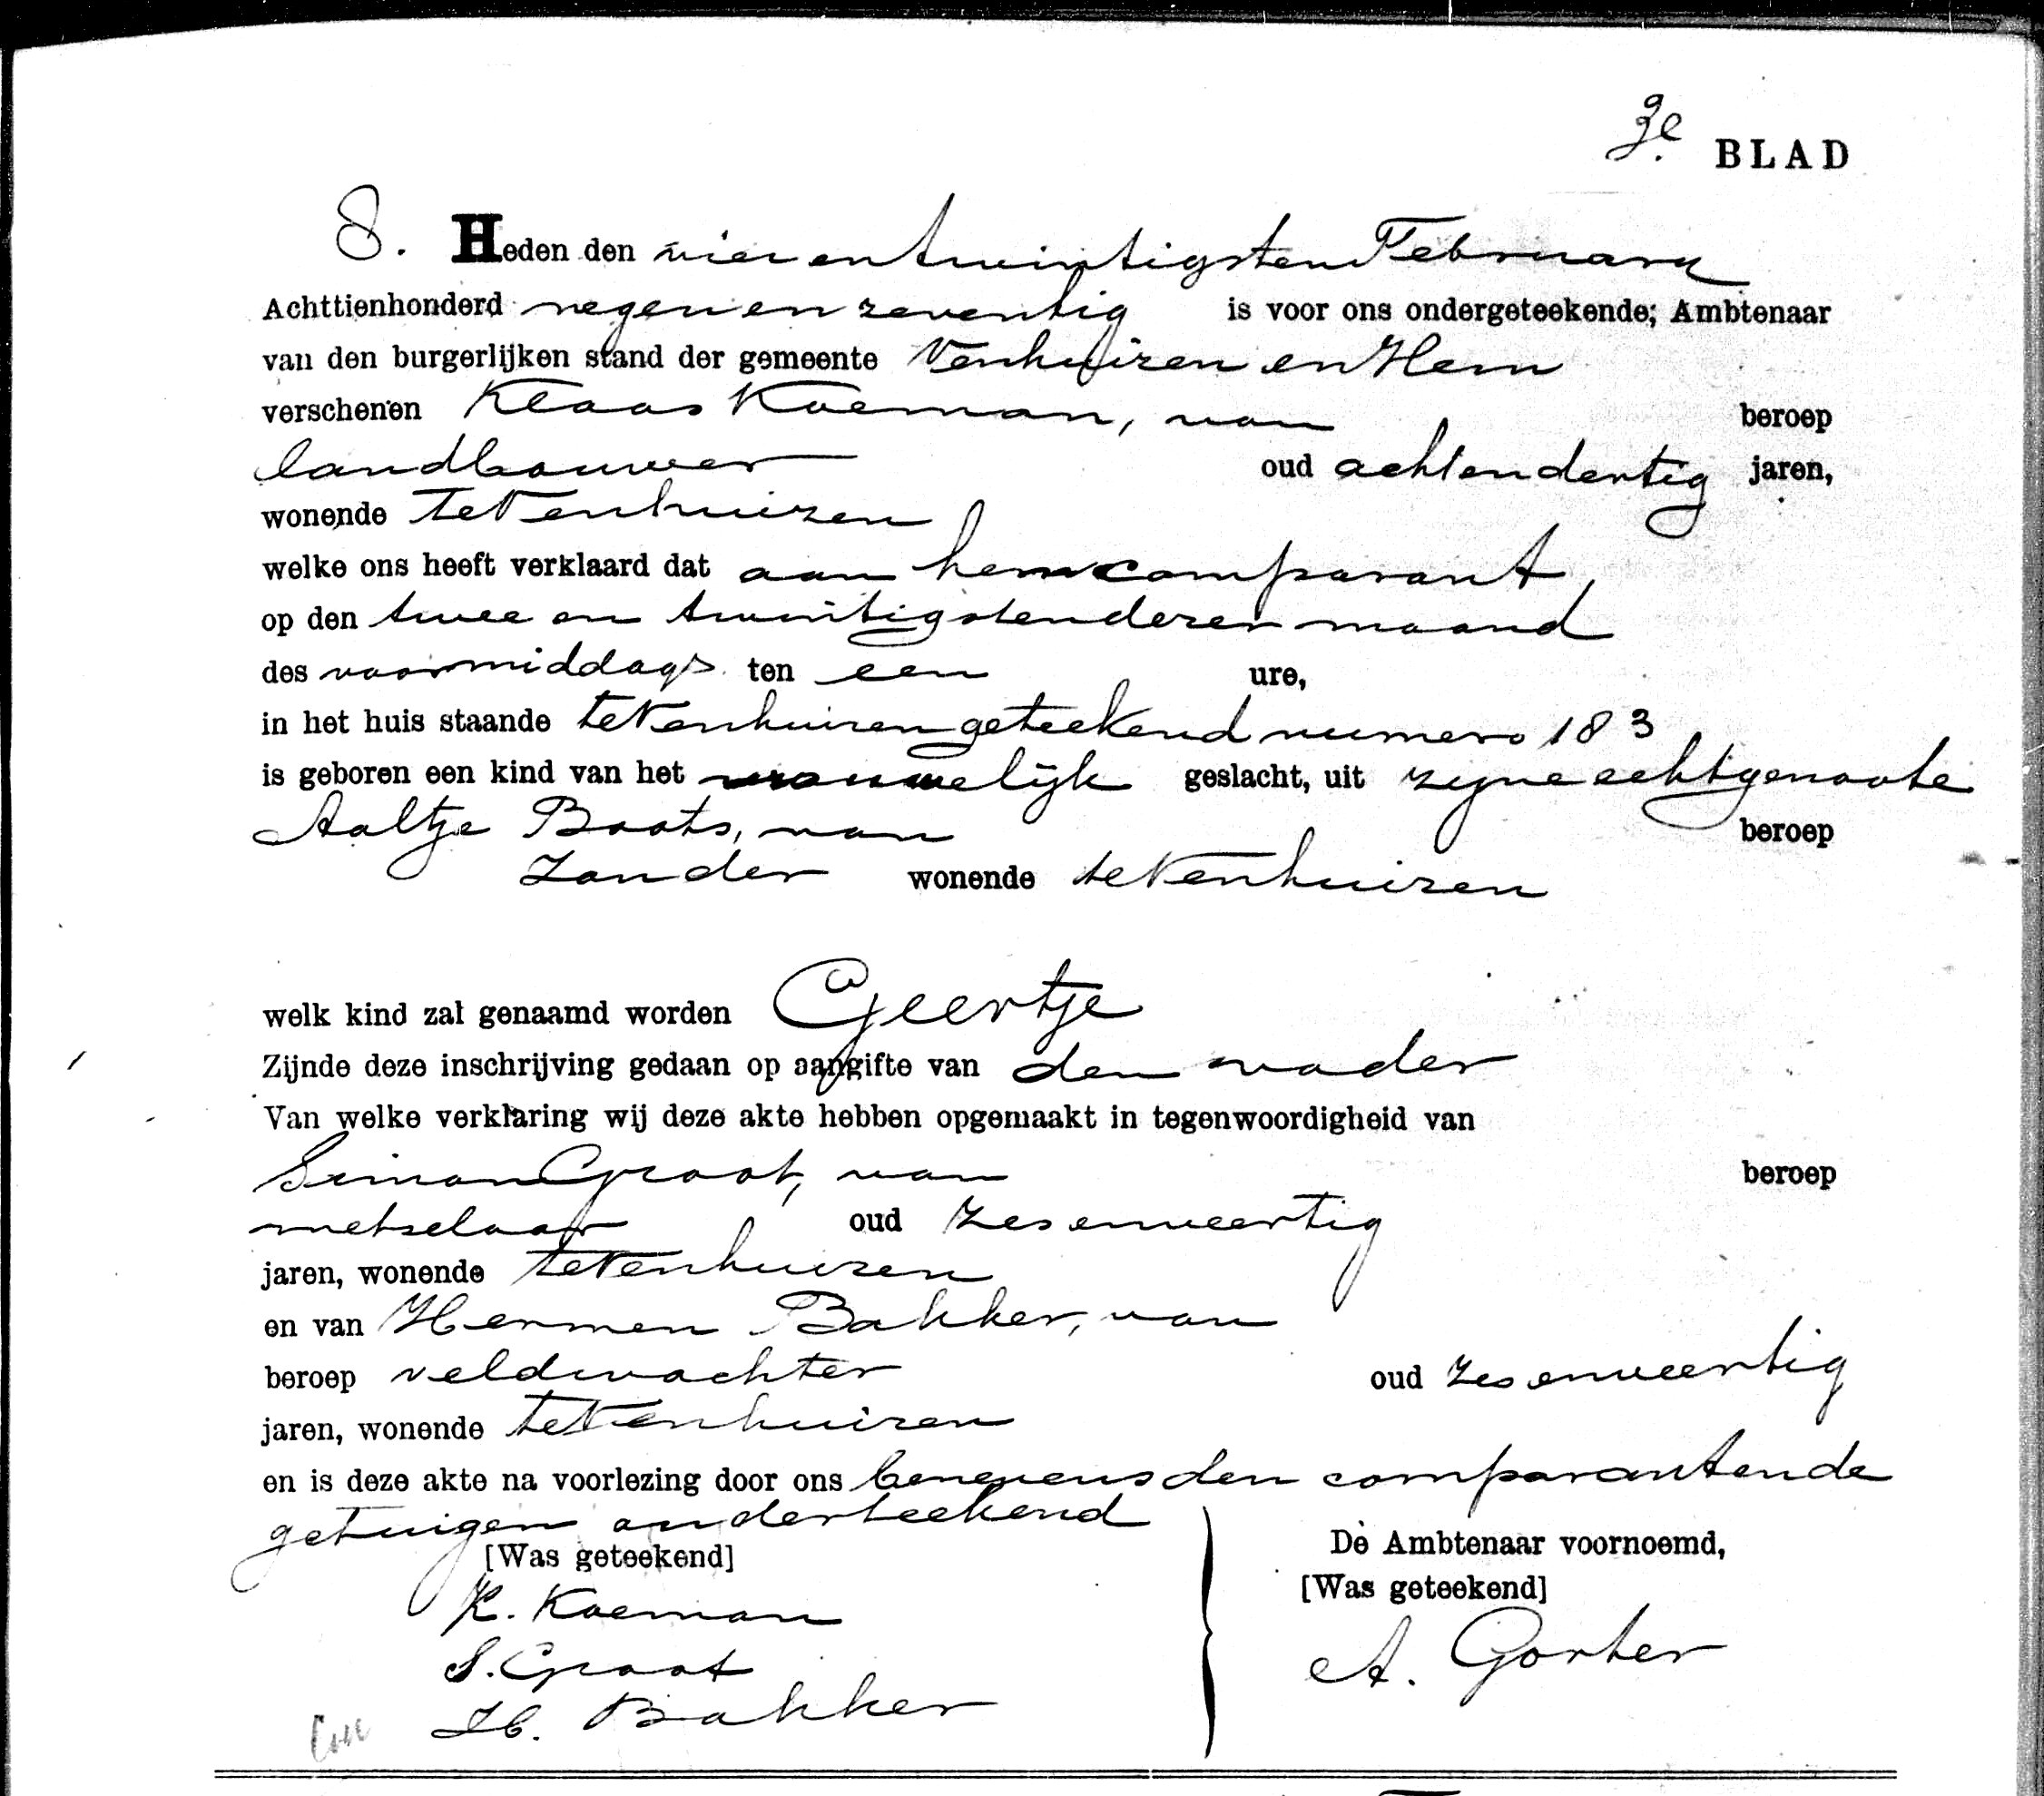 3e. BLAD
8. Heden den vier en twintigsten February
Achttienhonderd negen en zeventig is voor ons ondergeteekende; Ambtenaar
van den burgerlijken stand der gemeente Venhuizen en Hem
verschenen Klaas Koeman, van beroep
landbouwer oud achtendertig jaren,
wonende te Venhuizen
welke ons heeft verklaard dat aan hem comparant,
op den twee en twintigsten dezer maand
des voormiddags ten een ure,
in het huis staande te Venhuizen geteekend numero 183
is geboren een kind van het vrouwelijk geslacht, uit zijne echtgenoote
Aaltje Boots, van beroep
zonder wonende te Venhuizen
welk kind zal genaamd worden Geertje
Zijnde deze inschrijving gedaan op aangifte van den vader
Van welke verklaring wij deze akte hebben opgemaakt in tegenwoordigheid van
Simon Groot, van beroep
metselaar oud zesenveertig
jaren, wonende te Venhuizen
en van Hermen Bakker, van
beroep veldwachter oud zesenveertig
jaren, wonende te Venhuizen
en is deze akte na voorlezing door ons benevens den comparant en de
getuigen onderteekend
[Was geteekend] De Ambtenaar voornoemd,
K. Koeman [Was geteekend]
S. Groot A. Gorter
H. Bakker